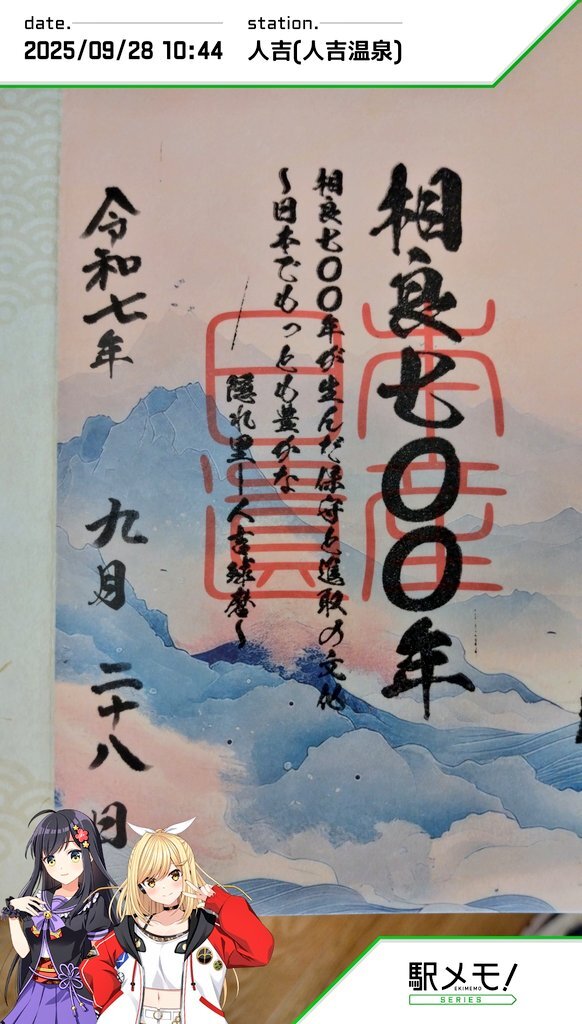 date.
2025/09/28 10:44
station.
人吉(人吉温泉)
相良七〇〇年
相良七〇〇年が生んだ保守と進取の文化
〜日本でもっとも豊かな
隠れ里ー人吉球磨〜
日本遺産
令和七年 九月 二十八日
駅メモ!
EKIMEMO
SERIES